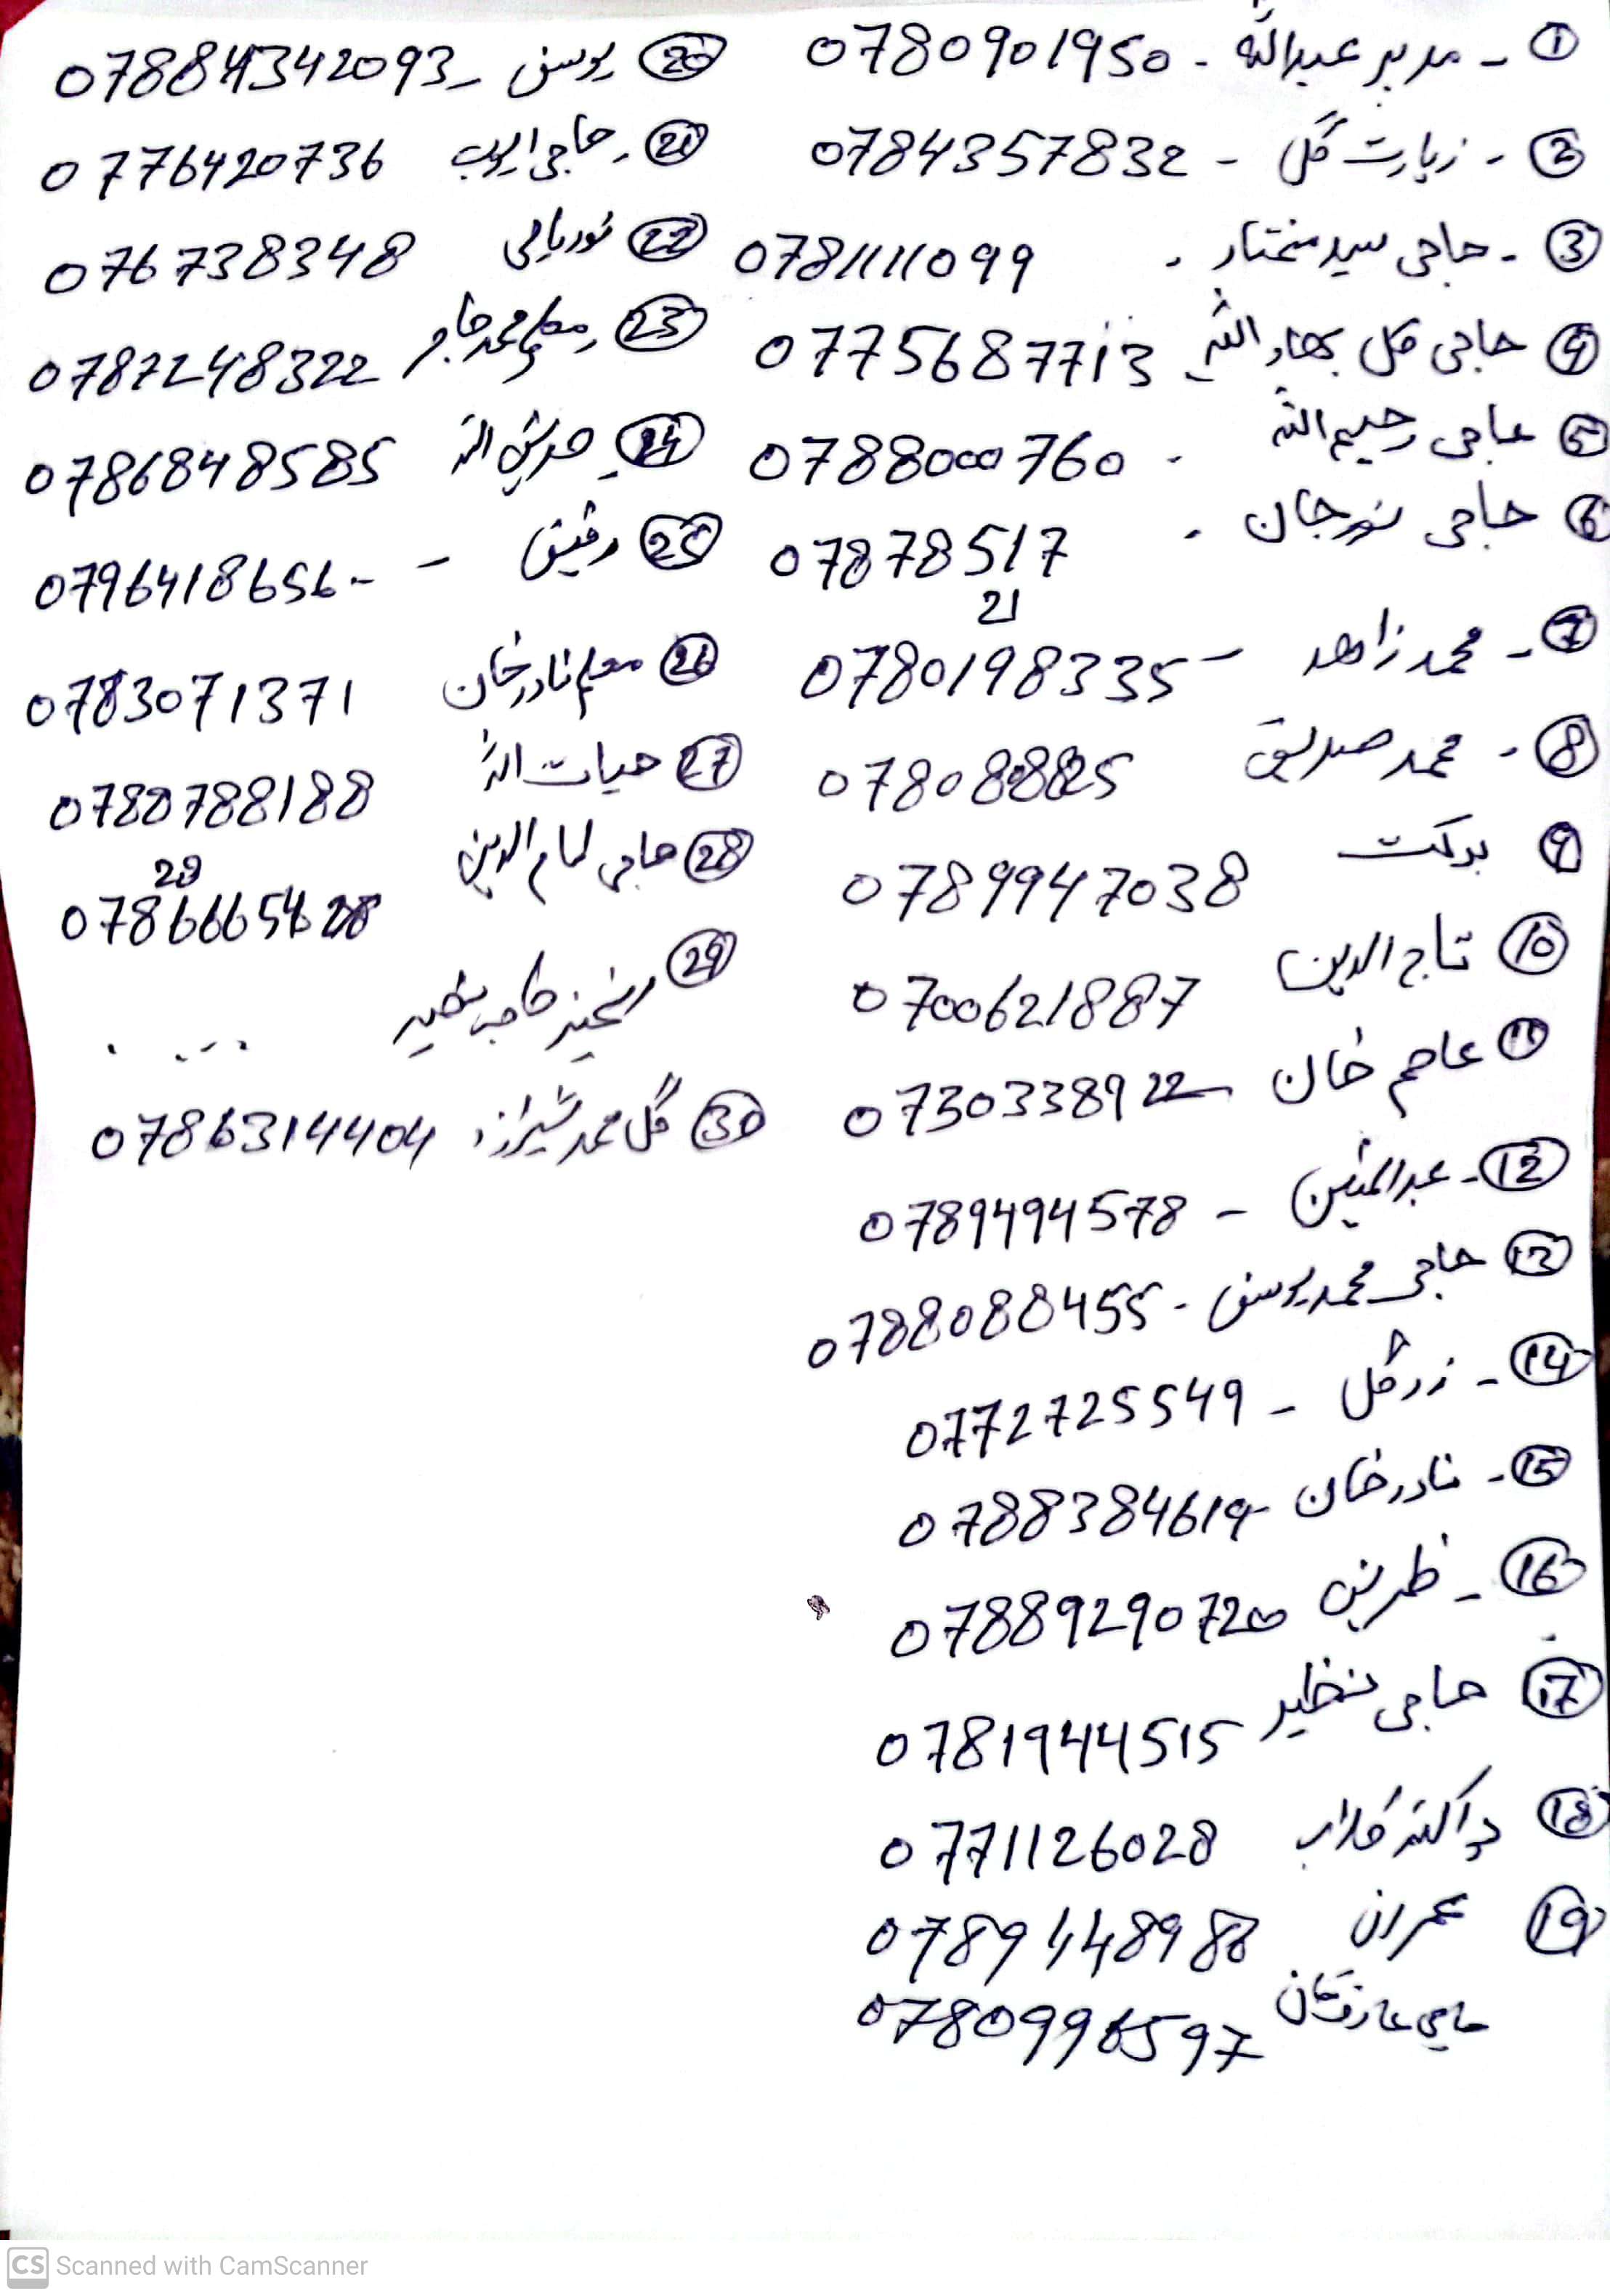 ① - مدیر عبدالله - 0780901950
② - زیارت گل - 0784357832
③ - حاجی سید مختار - 0781111099
④ حاجی گل بهاد الله 0775687713
⑤ حاجی رحیم الله - 0788000760
⑥ حاجی نورجان - 07878517
21
⑦ - محمد زاهد - 0780198335
⑧ - محمد صدیق 078088825
⑨ برکت 0789947038
⑩ تاج الدین 0700621887
⑪ عاصم خان 0730338922
⑫ - عبدالمتین - 0789494578
⑬ حاجی محمد یوسف - 0788088455
⑭ - زرگل - 0772725549
⑮ - نادر خان - 0788384619
⑯ - ظرین 0788929072
⑰ حاجی نظیر 0781944515
⑱ ډاکتر گلاب 0771126028
⑲ عمران 0789148988
حاجی عارف خان 0780996597
⑳ یوسف - 07884342093
㉑ - حاجی ایوب 0776420736
㉒ نوربابی 076738348
㉓ - معلم محمد 0787248322
㉔ 0786848585
㉕ رفیق - 0796418656 -
㉖ معلم نادر خان 0783071371
㉗ حیات الله 0780788188
㉘ حاجی امام الدین 07866654
29
㉙ انجنیر حاجی نصیر ....
㉚ گل محمد شیرزاد 0786314404
CS Scanned with CamScanner